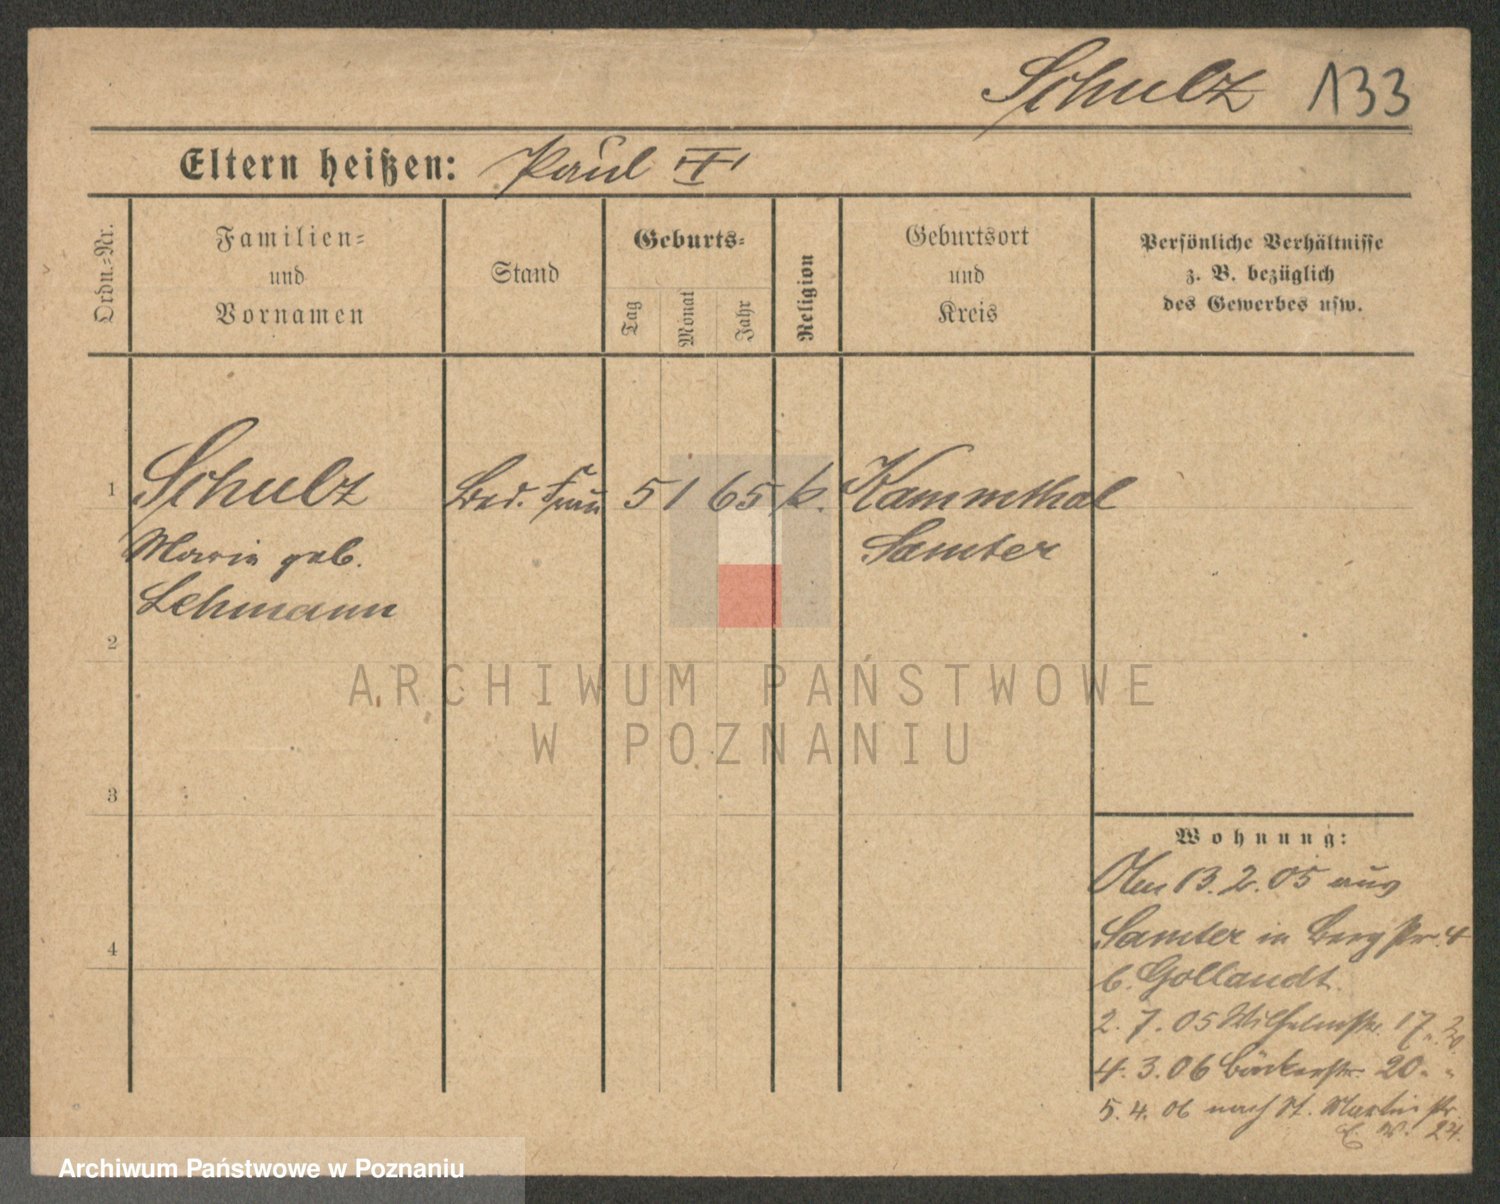 Schulz 133
Eltern heißen: Paul III
Ordn.-Nr.
Familien-
und
Vornamen
Stand
Geburts-
Tag
Monat
Jahr
Religion
Geburtsort
und
Kreis
Persönliche Verhältnisse
z. B. bezüglich
des Gewerbes usw.
1 Schulz Bed. Frau 5 1 65 k. Kammthal
Marie geb. Samter
Lehmann
2
3
4
Wohnung:
13.2.05 aus
Samter in Bergstr. 4
b. Gollandt
2.7.05 Wilhelmstr. 17
4.3.06 Bäckerstr. 20 " "
5.4.06 nach St. Martinstr.
24.
ARCHIWUM PAŃSTWOWE
W POZNANIU
Archiwum Państwowe w Poznaniu